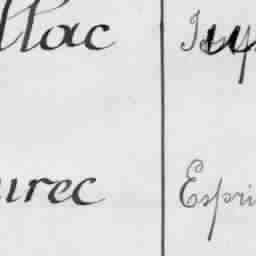 llac
urec Espri